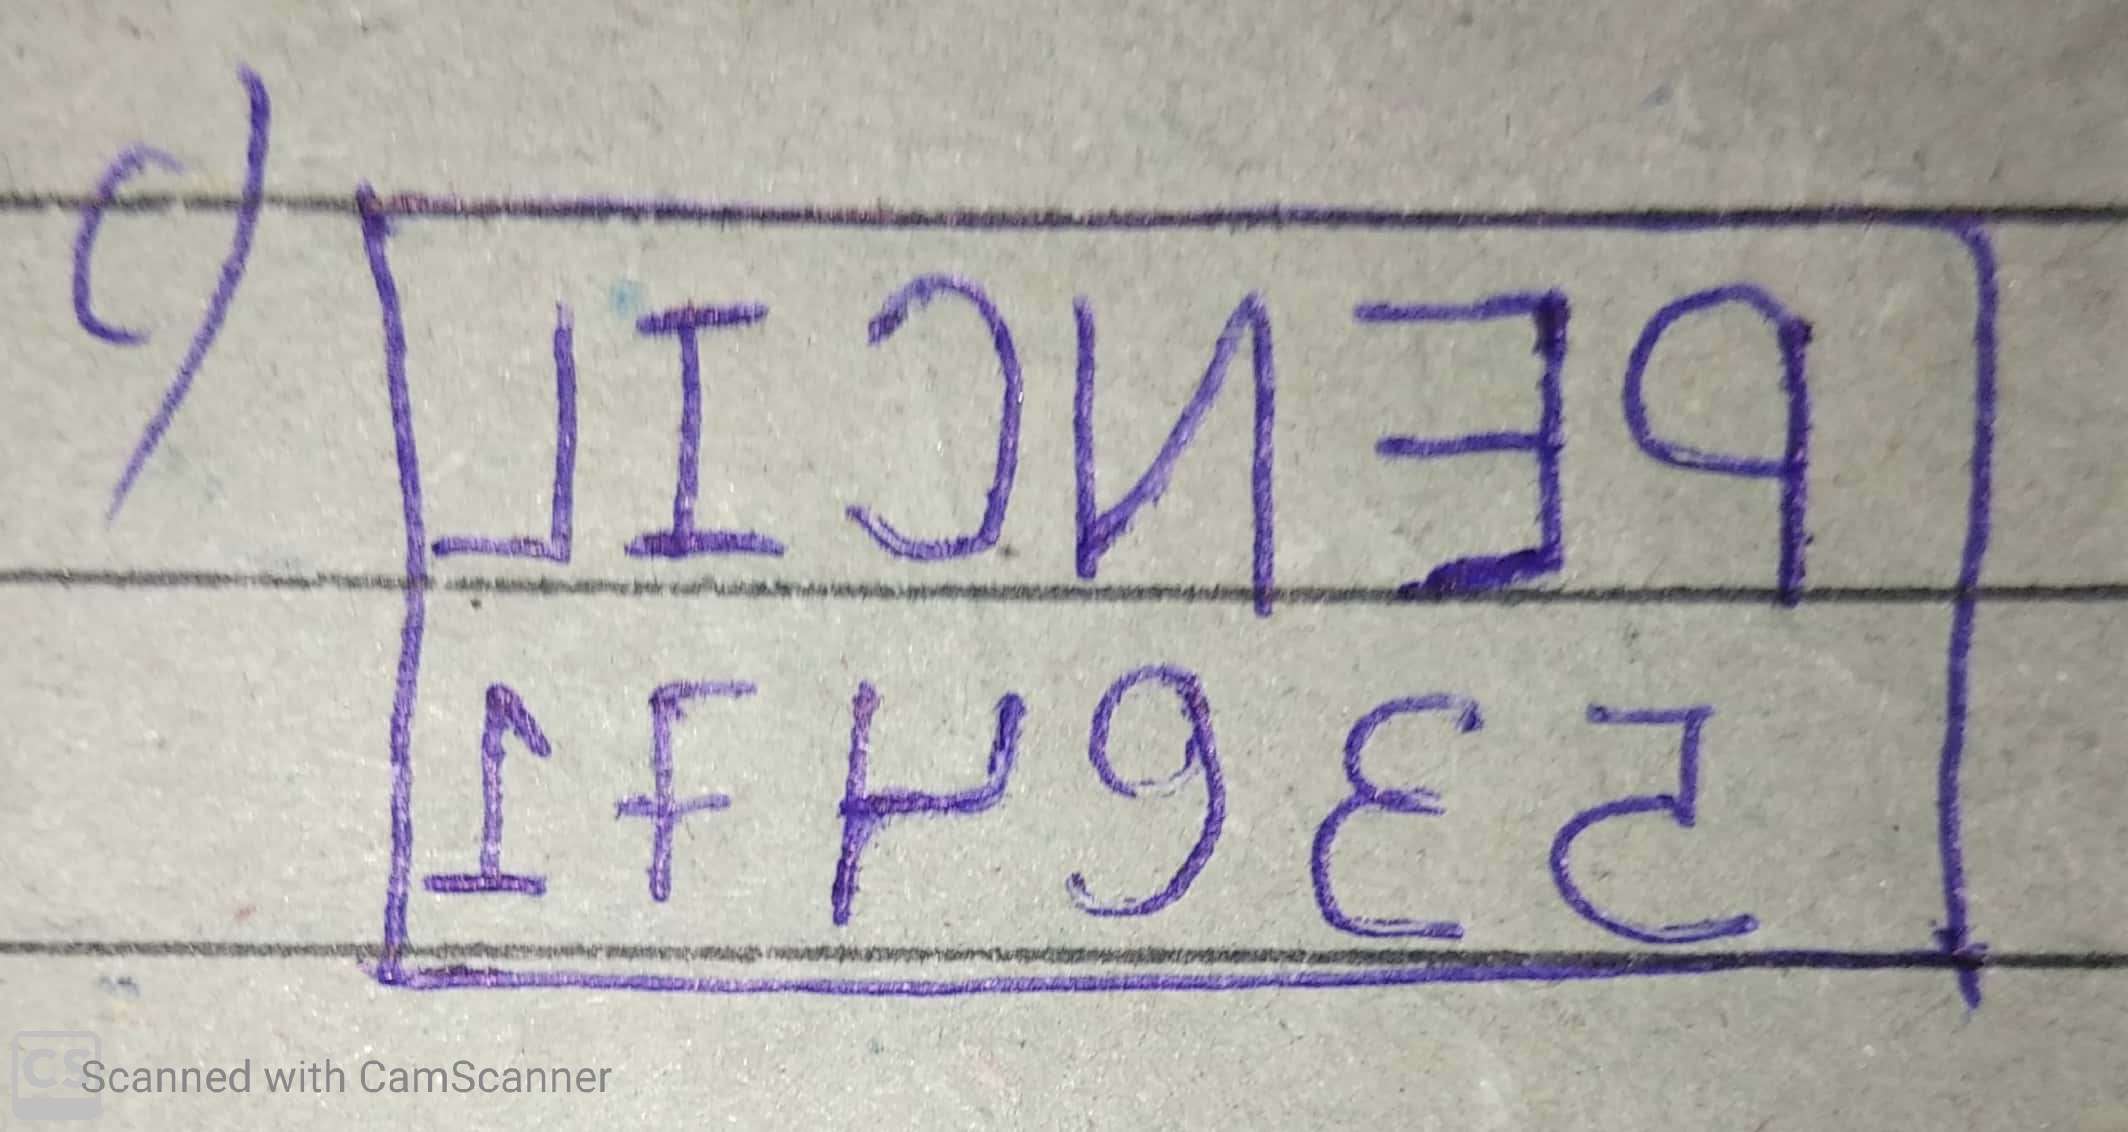 c) PENCIL
539471
Scanned with CamScanner